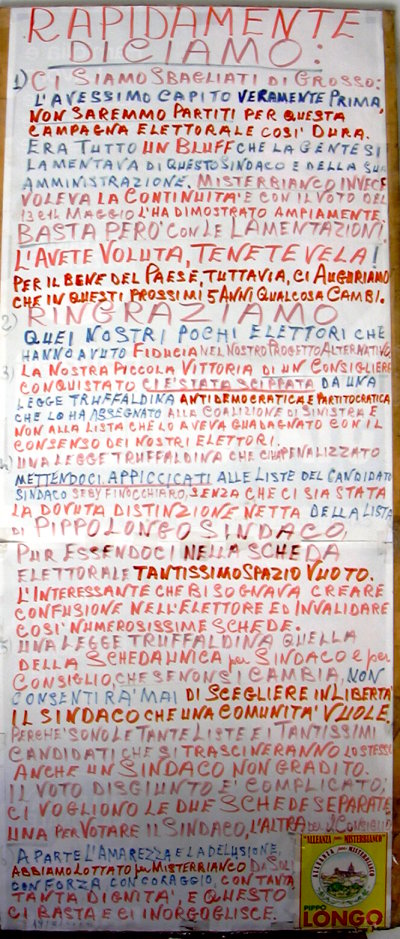 RAPIDAMENTE
DICIAMO:
1) CI SIAMO SBAGLIATI DI GROSSO:
L'AVESSIMO CAPITO VERAMENTE PRIMA,
NON SAREMMO PARTITI PER QUESTA
CAMPAGNA ELETTORALE COSI' DURA.
ERA TUTTO UN BLUFF CHE LA GENTE SI
LAMENTAVA DI QUESTO SINDACO E DELLA SUA
AMMINISTRAZIONE. MISTERBIANCO INVECE
VOLEVA LA CONTINUITA' E CON IL VOTO DEL
13 E 14 MAGGIO L'HA DIMOSTRATO AMPIAMENTE.
BASTA PERO' CON LE LAMENTAZIONI.
L'AVETE VOLUTA, TENETEVELA!
PER IL BENE DEL PAESE, TUTTAVIA, CI AUGURIAMO
CHE IN QUESTI PROSSIMI 5 ANNI QUALCOSA CAMBI.
2) RINGRAZIAMO
QUEI NOSTRI POCHI ELETTORI CHE
HANNO AVUTO FIDUCIA NEL NOSTRO PROGETTO ALTERNATIVO.
3) LA NOSTRA PICCOLA VITTORIA DI UN CONSIGLIERE
CONQUISTATO CI E' STATA SCIPPATA DA UNA
LEGGE TRUFFALDINA ANTIDEMOCRATICA E PARTITOCRATICA
CHE LO HA ASSEGNATO ALLA COALIZIONE DI SINISTRA E
NON ALLA LISTA CHE LO AVEVA GUADAGNATO CON IL
CONSENSO DEI NOSTRI ELETTORI.
4) UNA LEGGE TRUFFALDINA CHE CI HA PENALIZZATO
METTENDOCI APPICCICATI ALLE LISTE DEL CANDIDATO
SINDACO SEBY FINOCCHIARO, SENZA CHE CI SIA STATA
LA DOVUTA DISTINZIONE NETTA DELLA LISTA
DI PIPPO LONGO SINDACO,
PUR ESSENDOCI NELLA SCHEDA
ELETTORALE TANTISSIMO SPAZIO VUOTO.
L'INTERESSANTE CHE BISOGNAVA CREARE
CONFUSIONE NELL'ELETTORE ED INVALIDARE
COSI' NUMEROSISSIME SCHEDE.
5) UNA LEGGE TRUFFALDINA QUELLA
DELLA SCHEDA UNICA per SINDACO e per
CONSIGLIO, CHE SE NON SI CAMBIA, NON
CONSENTIRA' MAI DI SCEGLIERE IN LIBERTA'
IL SINDACO CHE UNA COMUNITA' VUOLE.
PERCHE' SONO LE TANTE LISTE E I TANTISSIMI
CANDIDATI CHE SI TRASCINERANNO LO STESSO
ANCHE UN SINDACO NON GRADITO.
IL VOTO DISGIUNTO E' COMPLICATO,
CI VOGLIONO LE DUE SCHEDE SEPARATE
UNA PER VOTARE IL SINDACO, L'ALTRA per IL CONSIGLIO
A PARTE L'AMAREZZA E LA DELUSIONE,
ABBIAMO LOTTATO per MISTERBIANCO DA SOLI
CON FORZA CON CORAGGIO, CON TANTA
TANTA DIGNITA', E QUESTO
CI BASTA E CI INORGOGLISCE.
"ALLEANZA per MISTERBIANCO"
ALLEANZA per MISTERBIANCO
PIPPO
LONGO